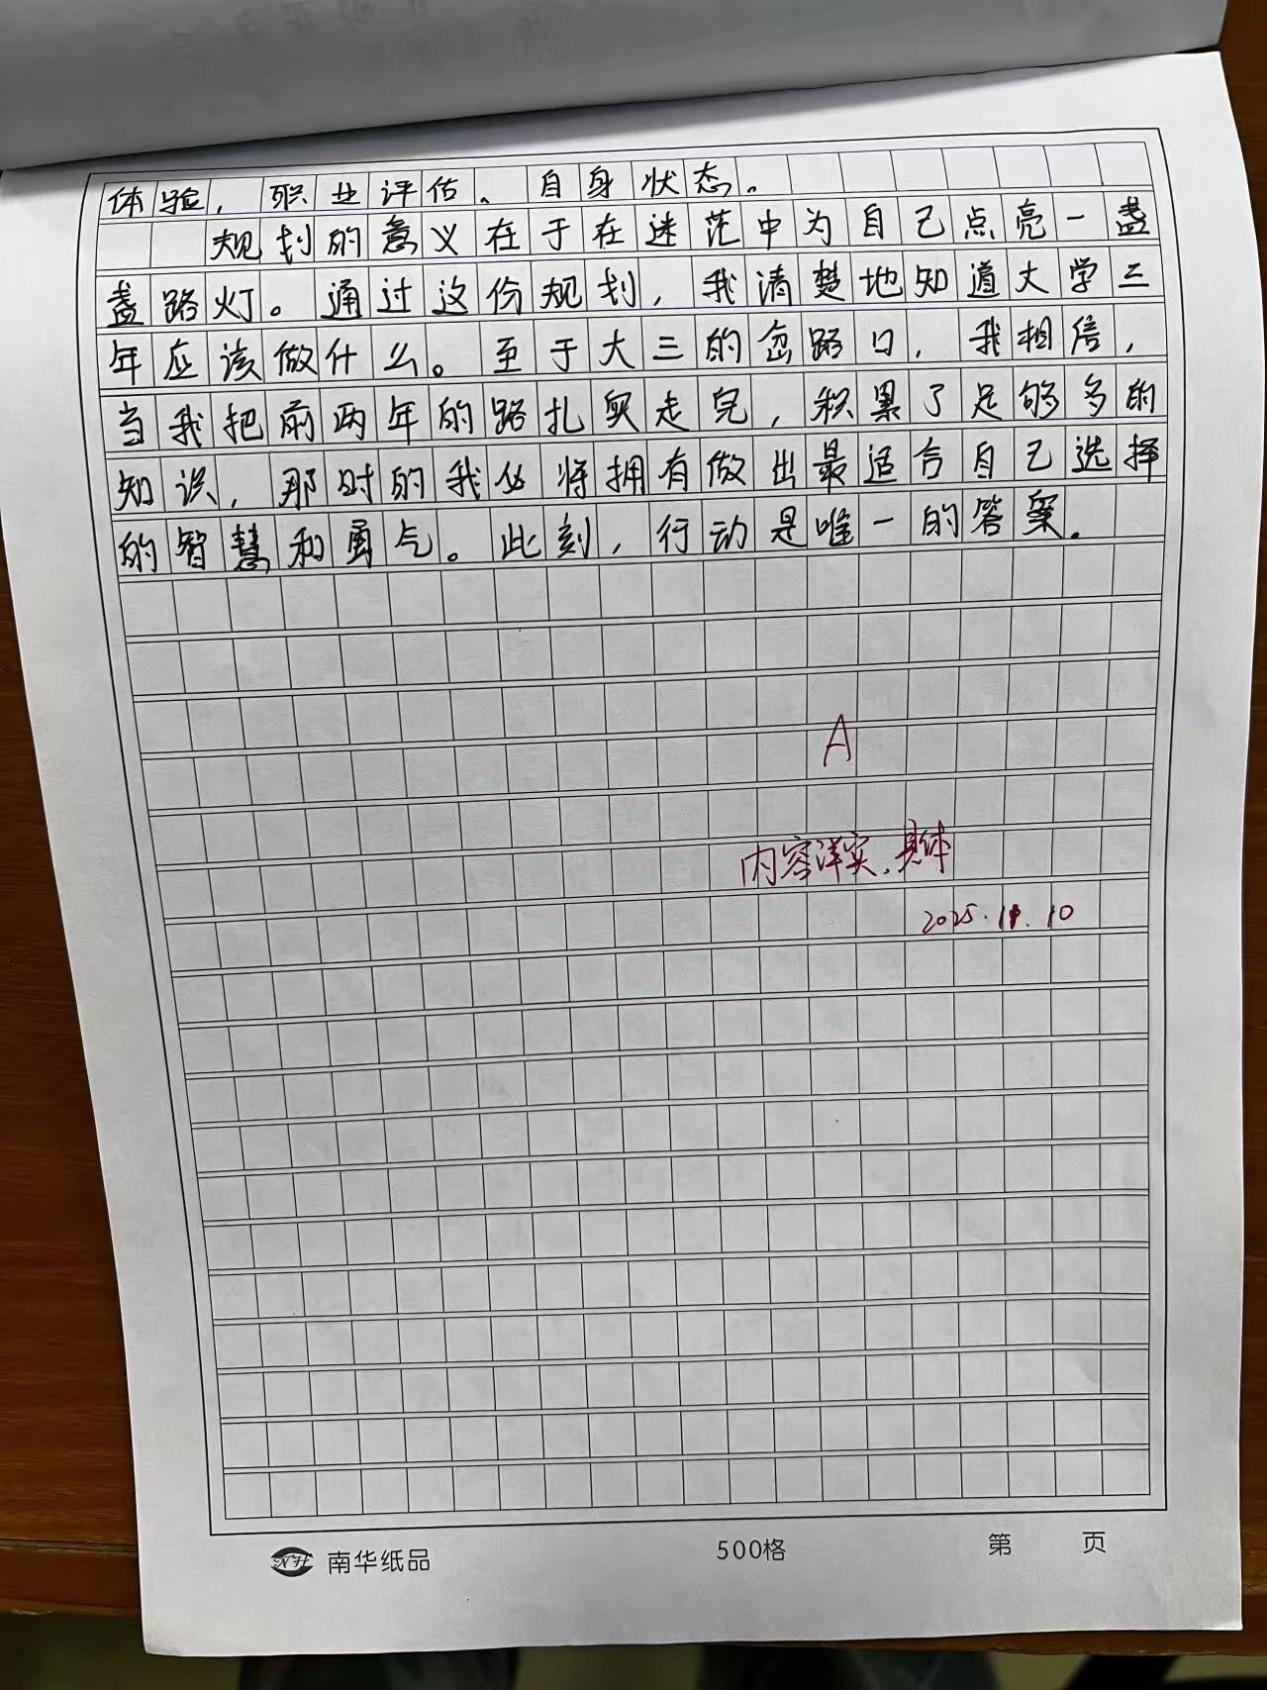 体验，职业评估、自身状态。
规划的意义在于在迷茫中为自己点亮一盏
盏路灯。通过这份规划，我清楚地知道大学三
年应该做什么。至于大三的岔路口，我相信，
当我把前两年的路扎实走完，积累了足够多的
知识，那时的我必将拥有做出最适合自己选择
的智慧和勇气。此刻，行动是唯一的答案。
A
内容详实，具体
2025.11.10
南华纸品
500格
第 页